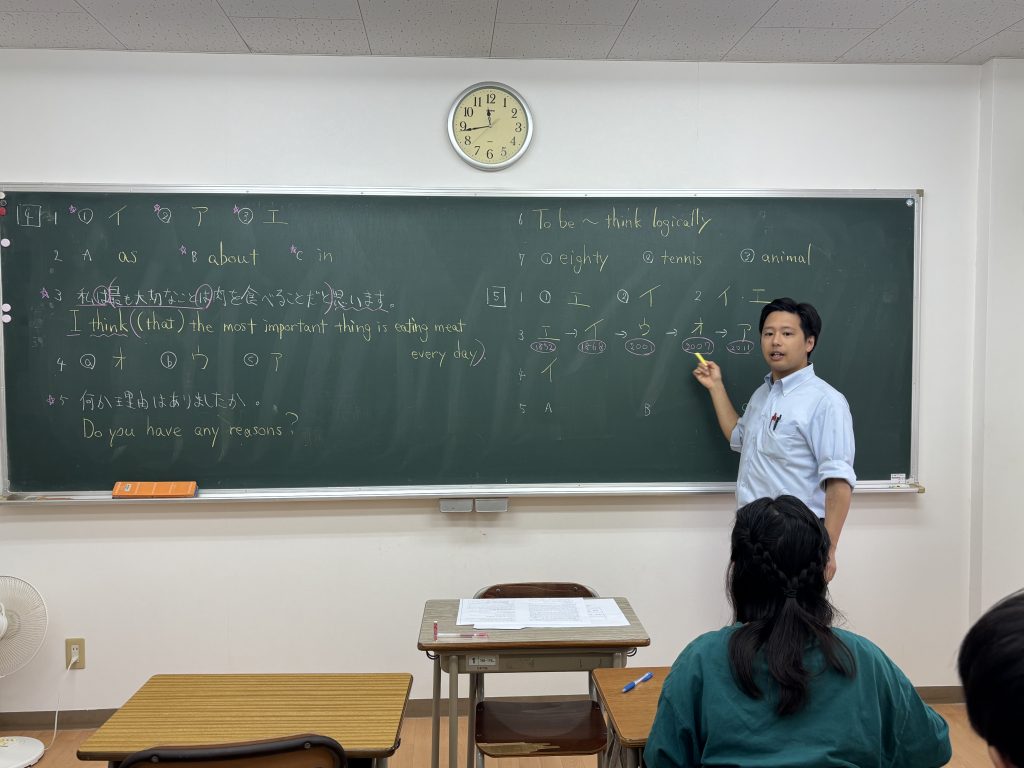 4 1 ① イ ② ア ③ エ
2 A as B about C in
3 私は最も大切なことは肉を食べることだと思います。
I think (that) the most important thing is eating meat
every day.
4 ⓐ オ ⓑ ウ ⓒ ア
5 何か理由はありましたか。
Do you have any reasons?
6 To be ~ think logically
7 ① eighty ② tennis ③ animal
5 1 ① エ ② イ 2 イ・エ
3 エ → イ → ウ → オ → ア
1852 1868 2001 2007 2011
4 イ
5 A B
12 1 2 3 4 5 6 7 8 9 10 11